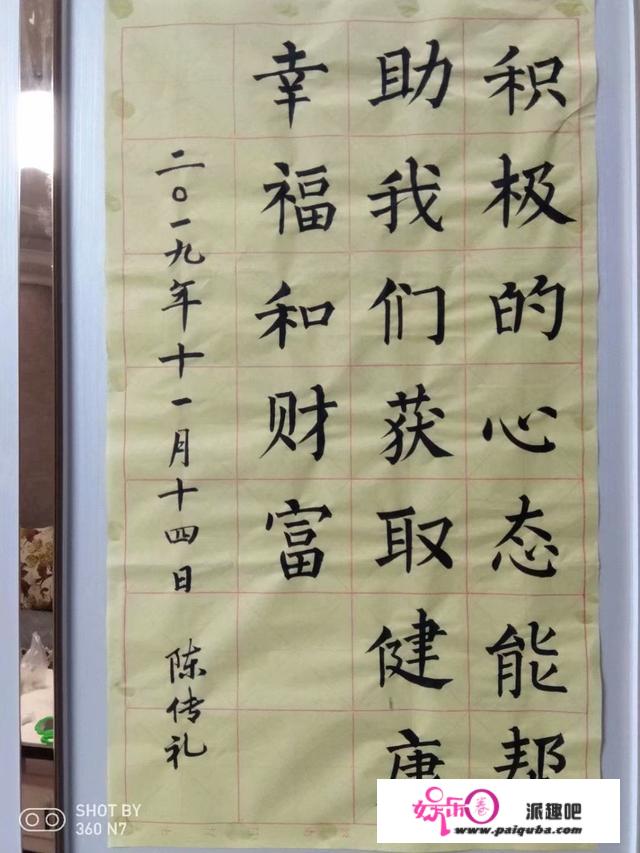 积极的心态能帮
助我们获取健康
幸福和财富
二〇一九年十一月十四日 陈传礼
SHOT BY
360 N7
娱乐圈 派趣吧
www.paiquba.com